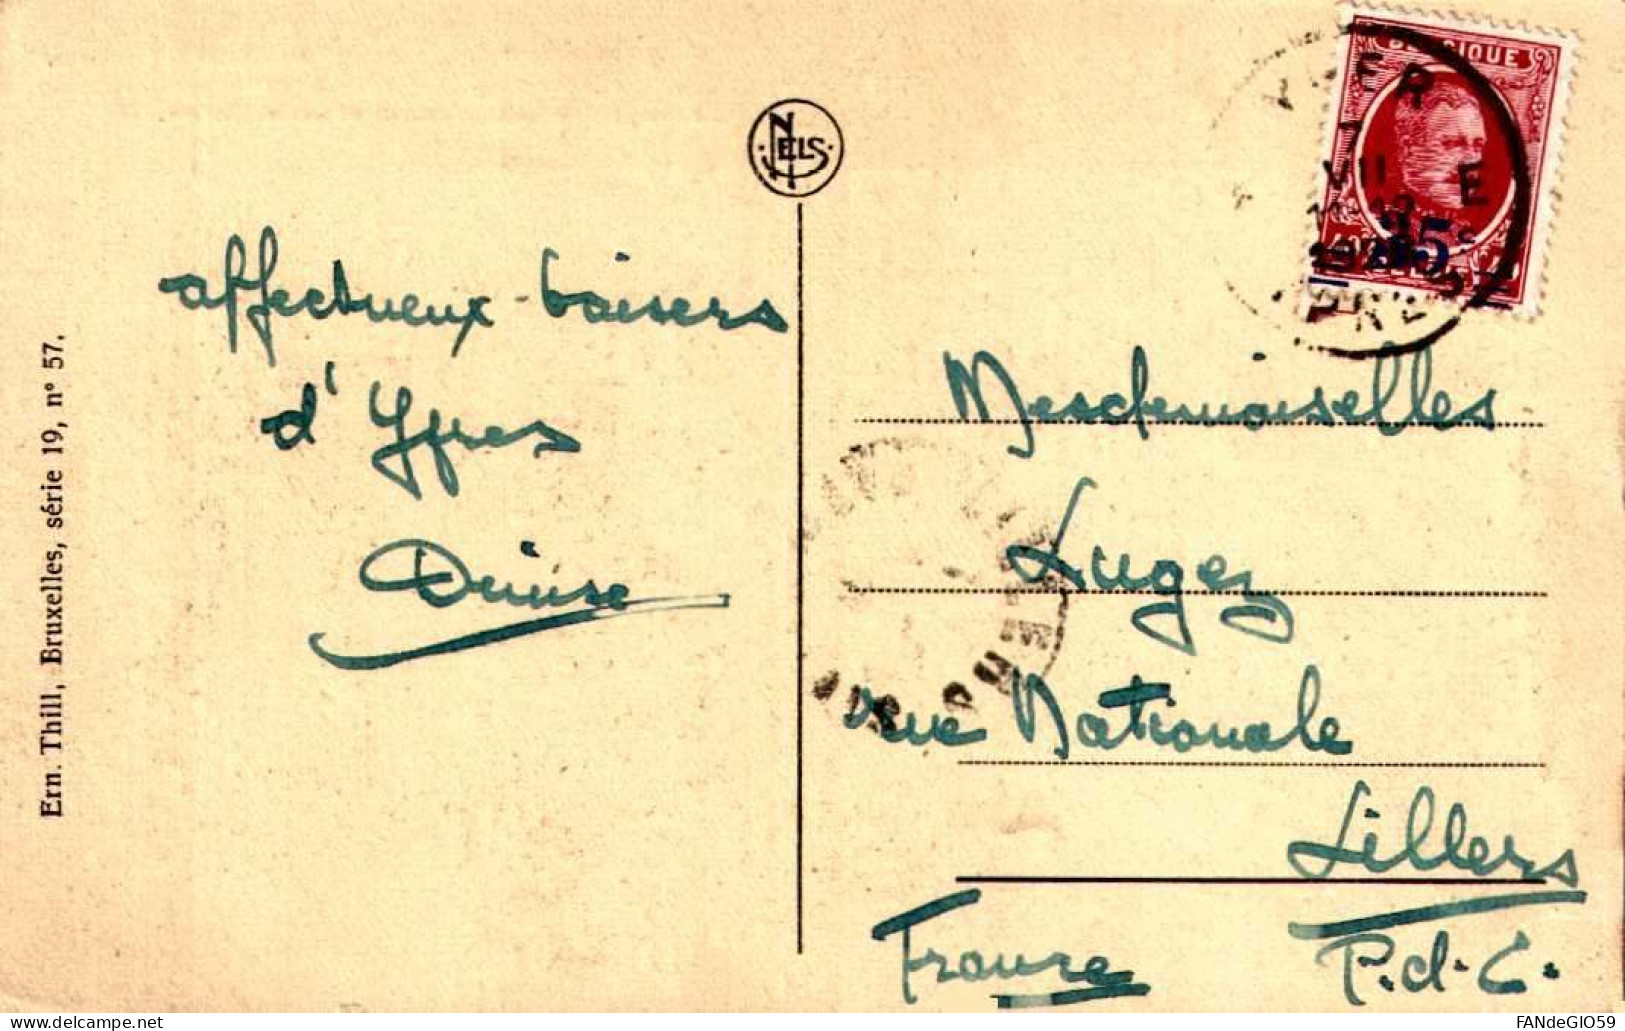 Ern. Thill, Bruxelles, série 19, n° 57.
NELS
affectueux baisers
d'Ypres
Denise
BELGIQUE
IEPER
7
VII
E
YPRES
Mesdemoiselles
Lugez
rue Nationale
Lillers
France P.d.C.
www.delcampe.net
FANdeGIO59